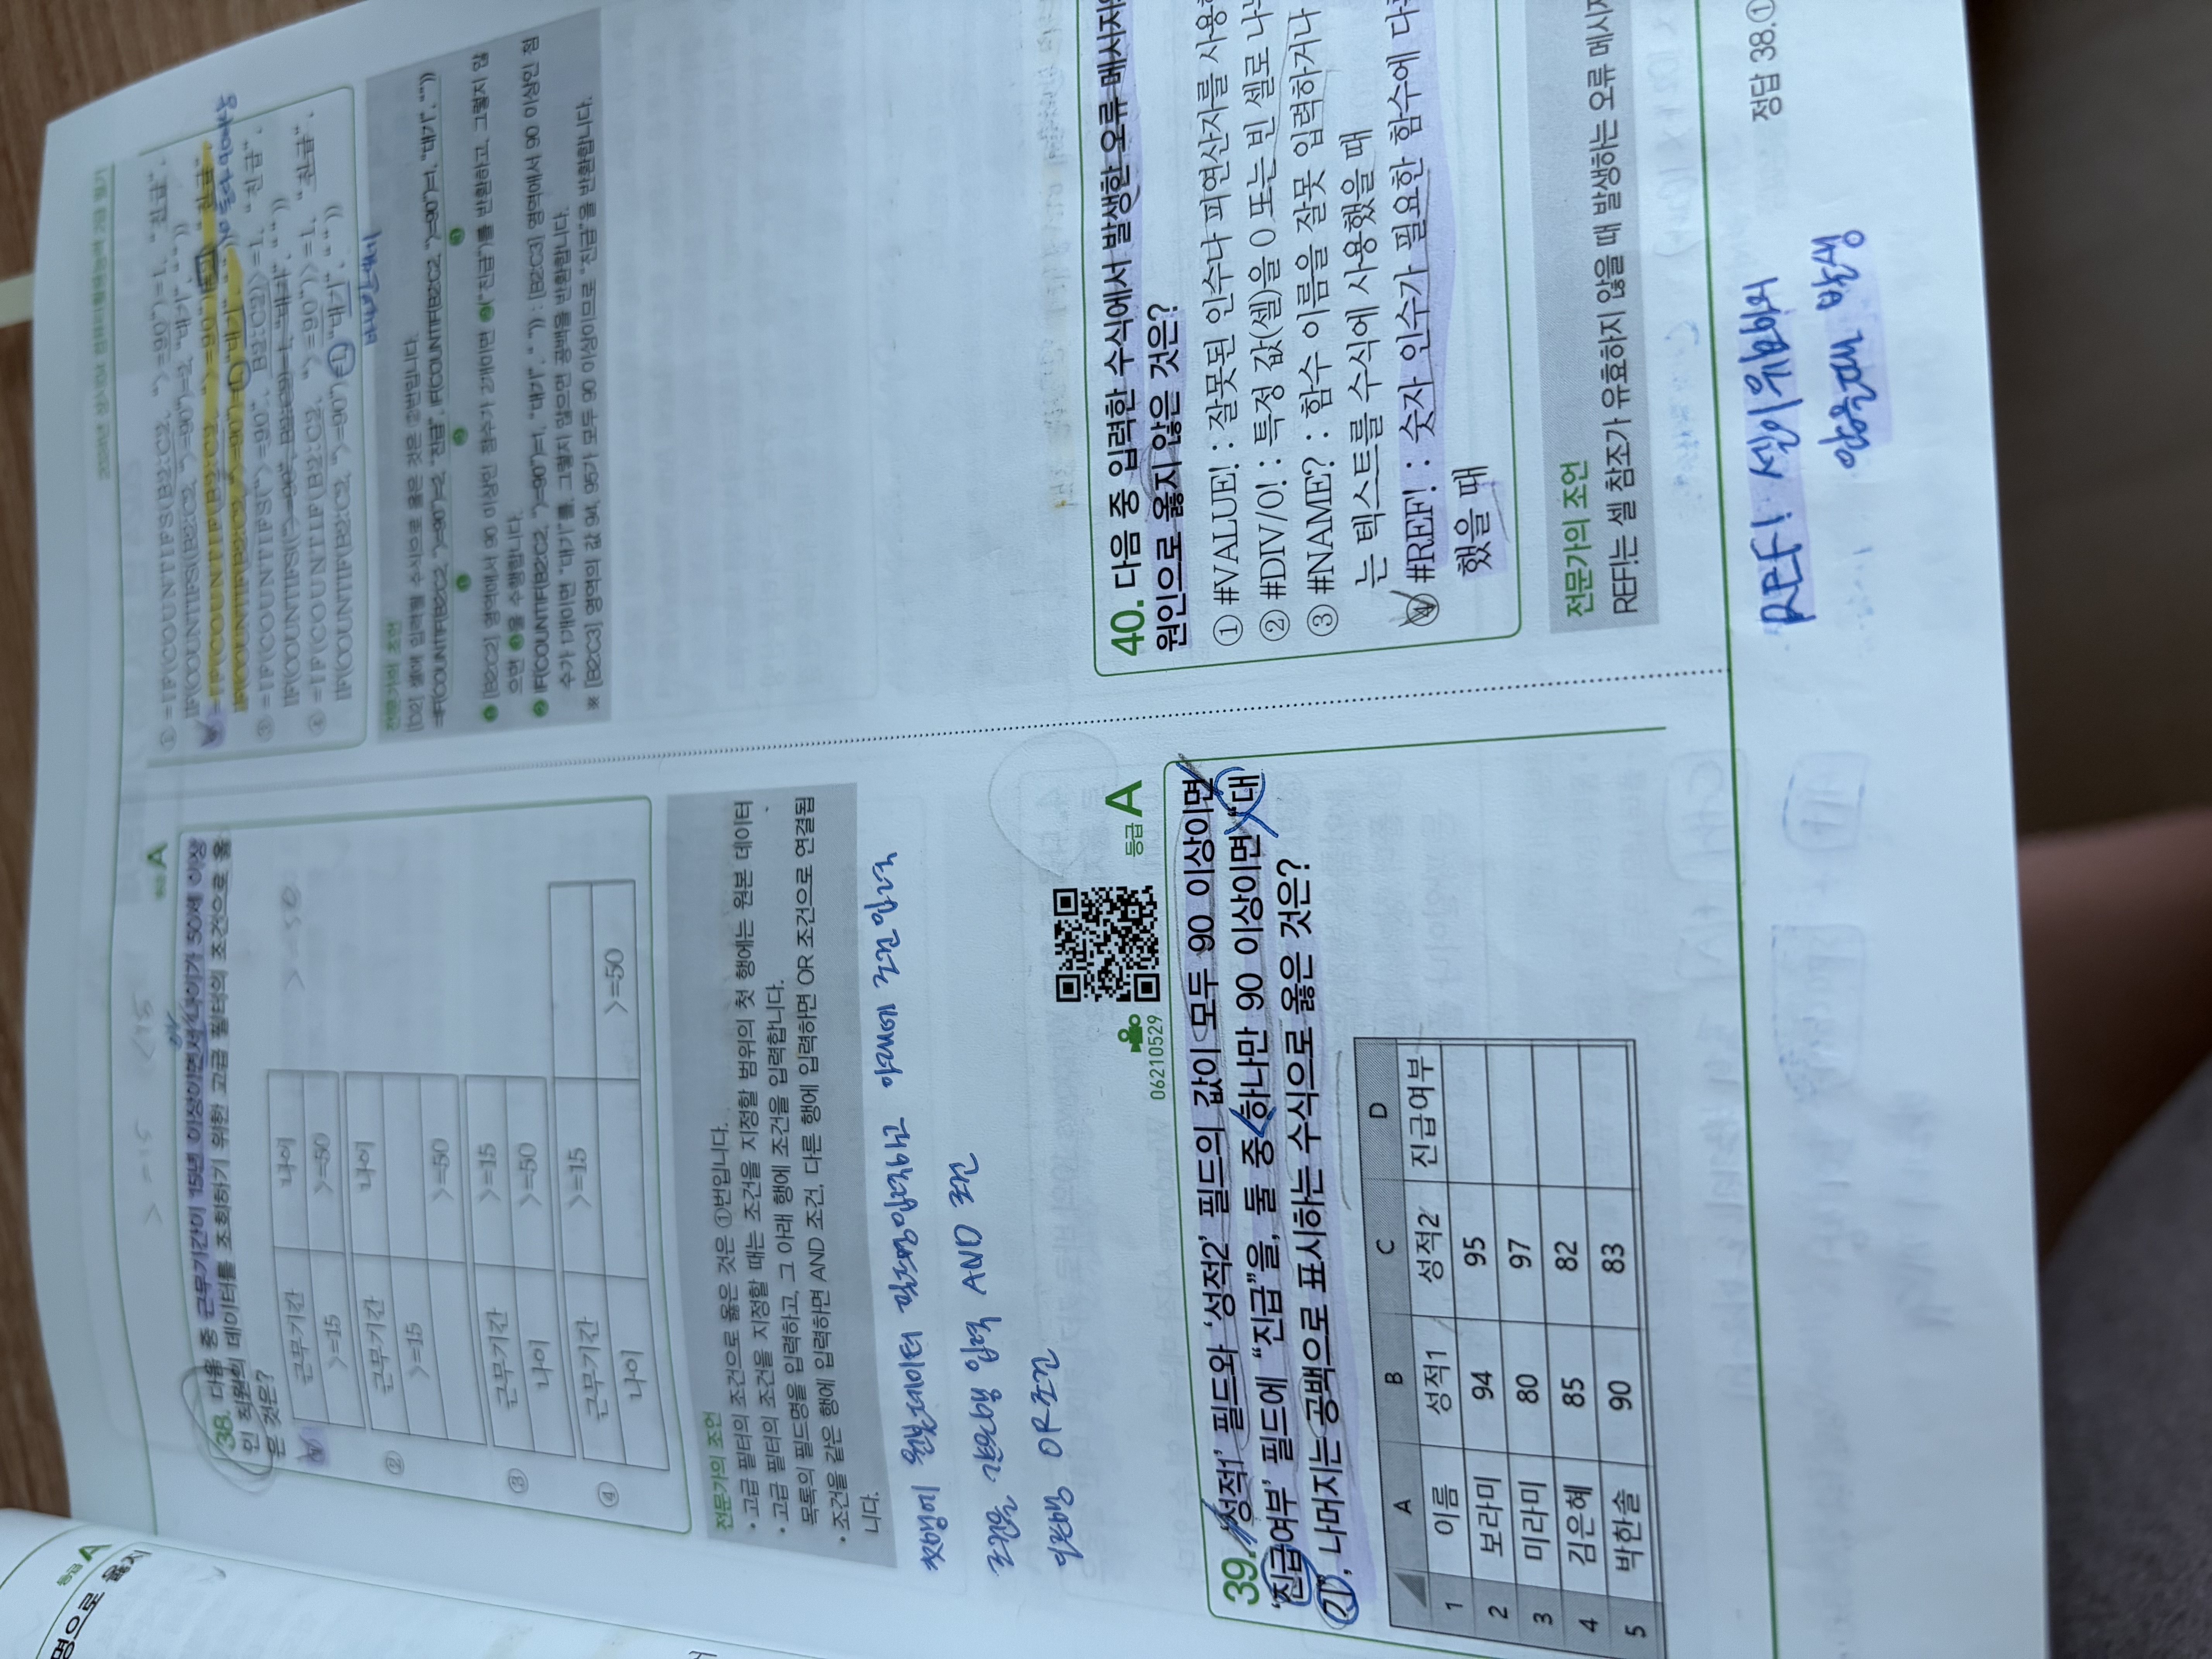 명으로 옳지
등급 A
2024년 상시04 컴퓨터활용능력 2급 필기
등급 A
38. 다음 중 근무기간이 15년 이상이면서 나이가 50세 이상
인 직원의 데이터를 조회하기 위한 고급 필터의 조건으로 옳
은 것은?
> = 15
> = 50
① 근무기간 나이
>=15 >=50
② 근무기간 나이
>=15
>=50
③ 근무기간 >=15
나이 >=50
④ 근무기간 >=15
나이 >=50
전문가의 조언
• 고급 필터의 조건으로 옳은 것은 ①번입니다.
• 고급 필터의 조건을 지정할 때는 조건을 지정할 범위의 첫 행에는 원본 데이터
목록의 필드명을 입력하고, 그 아래 행에 조건을 입력합니다.
• 조건을 같은 행에 입력하면 AND 조건, 다른 행에 입력하면 OR 조건으로 연결됩
니다.
첫행에 원본데이터 필드명입력하고 아래에 조건입력
조건을 같은행 입력 AND 조건
다른행 OR조건
06210529
등급 A
39. ‘성적1’ 필드와 ‘성적2’ 필드의 값이 모두 90 이상이면
‘진급여부’ 필드에 “진급”을, 둘 중 하나만 90 이상이면 “대
기”, 나머지는 공백으로 표시하는 수식으로 옳은 것은?
A B C D
1 이름 성적1 성적2 진급여부
2 보라미 94 95
3 미라미 80 97
4 김은혜 85 82
5 박한솔 90 83
① =IF(COUNTIFS(B2:C2, ">=90")=1, "진급",
IF(COUNTIFS(B2:C2, ">=90")=2, "대기", " "))
② =IF(COUNTIF(B2:C2, ">=90")=2, "진급",
IF(COUNTIF(B2:C2, ">=90")=1, "대기", " "))
③ =IF(COUNTIFS(">=90", B2:C2)=1, "진급",
IF(COUNTIFS(">=90", B2:C2)=1, "대기", " "))
④ =IF(COUNTIF(B2:C2, ">=90")=1, "진급",
IF(COUNTIF(B2:C2, ">=90")=1, "대기", " "))
전문가의 조언
[D2] 셀에 입력될 수식으로 옳은 것은 ②번입니다.
=IF(COUNTIF(B2:C2, ">=90")=2, "진급", IF(COUNTIF(B2:C2, ">=90")=1, "대기", " "))
❶ [B2:C2] 영역에서 90 이상인 점수가 2개이면 ❷("진급")를 반환하고, 그렇지 않
으면 ❸을 수행합니다.
❸ IF(COUNTIF(B2:C2, ">=90")=1, "대기", " ")) : [B2:C3] 영역에서 90 이상인 점
수가 1개이면 "대기"를, 그렇지 않으면 공백을 반환합니다.
※ [B2:C3] 영역의 값 94, 95가 모두 90 이상이므로 "진급"을 반환합니다.
40. 다음 중 입력한 수식에서 발생한 오류 메시지
원인으로 옳지 않은 것은?
① #VALUE! : 잘못된 인수나 피연산자를 사용
② #DIV/0! : 특정 값(셀)을 0 또는 빈 셀로 나
③ #NAME? : 함수 이름을 잘못 입력하거나
는 텍스트를 수식에 사용했을 때
④ #REF! : 숫자 인수가 필요한 함수에 다
했을 때
전문가의 조언
REF!는 셀 참조가 유효하지 않을 때 발생하는 오류 메시지
REF! 셀이 유효하지
않을때 발생
정답 38.①